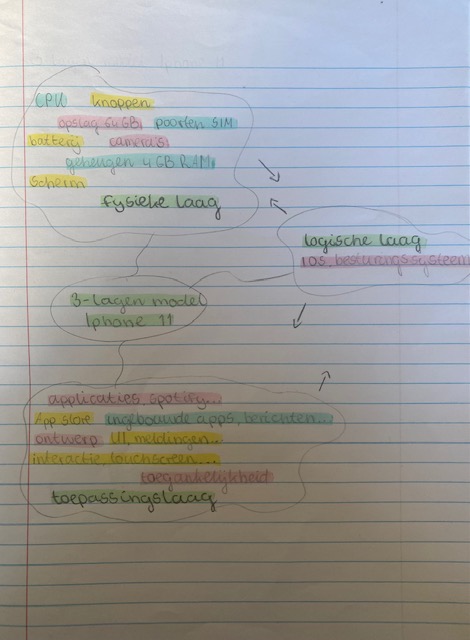 CPU knoppen
opslag 64GB poorten SIM
batterij camera's
geheugen 4GB RAM
scherm
fysieke laag
logische laag
IOS, besturingssysteem
3-lagen model
Iphone 11
applicaties, spotify...
App store ingebouwde apps, berichten...
ontwerp UI, meldingen...
interactie, touchscreen...
toegankelijkheid
toepassingslaag